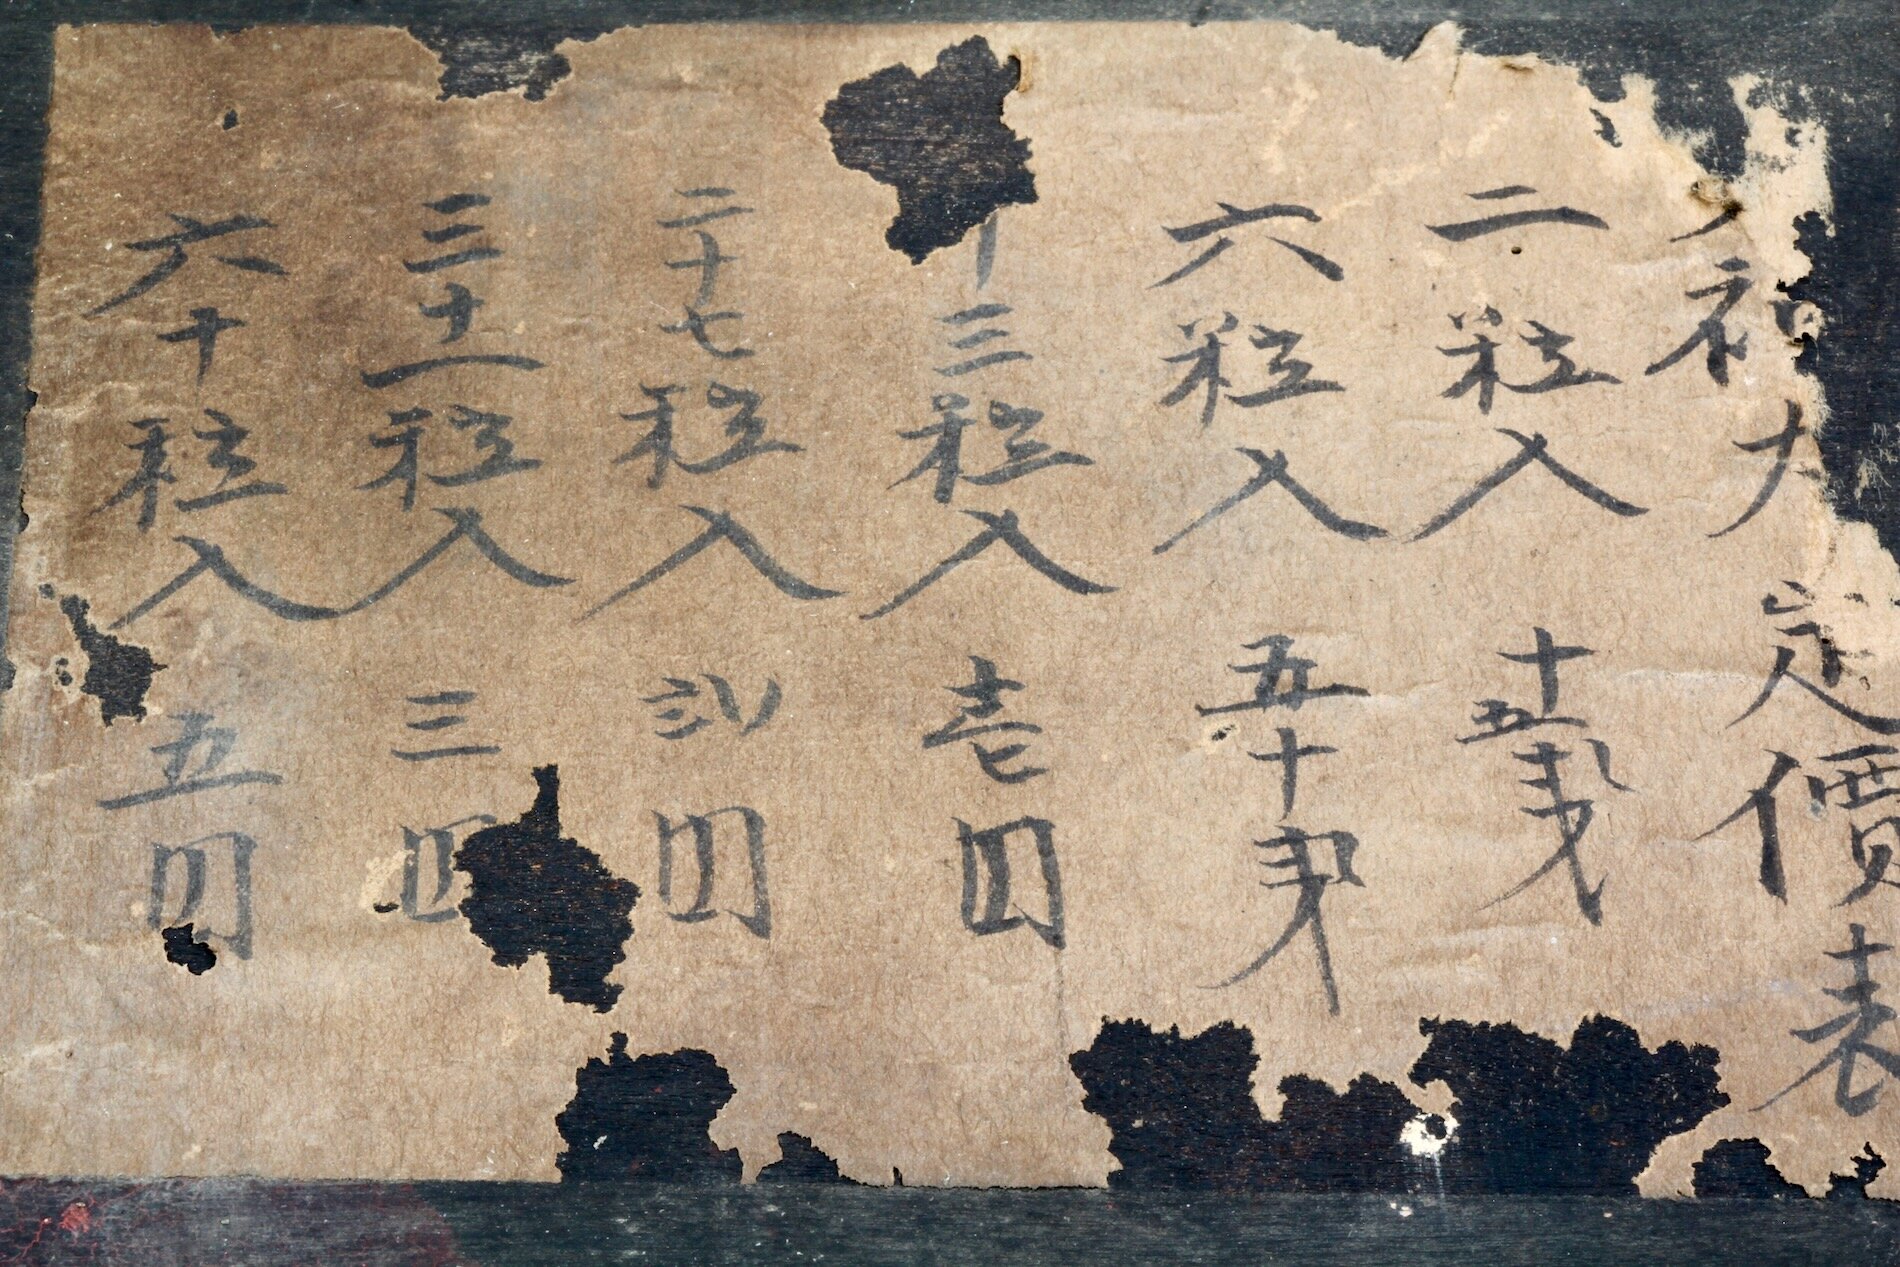 定價表
二粒入 十五銭
六粒入 五十銭
十三粒入 壱円
二十七粒入 弐円
三十二粒入 三円
六十粒入 五円